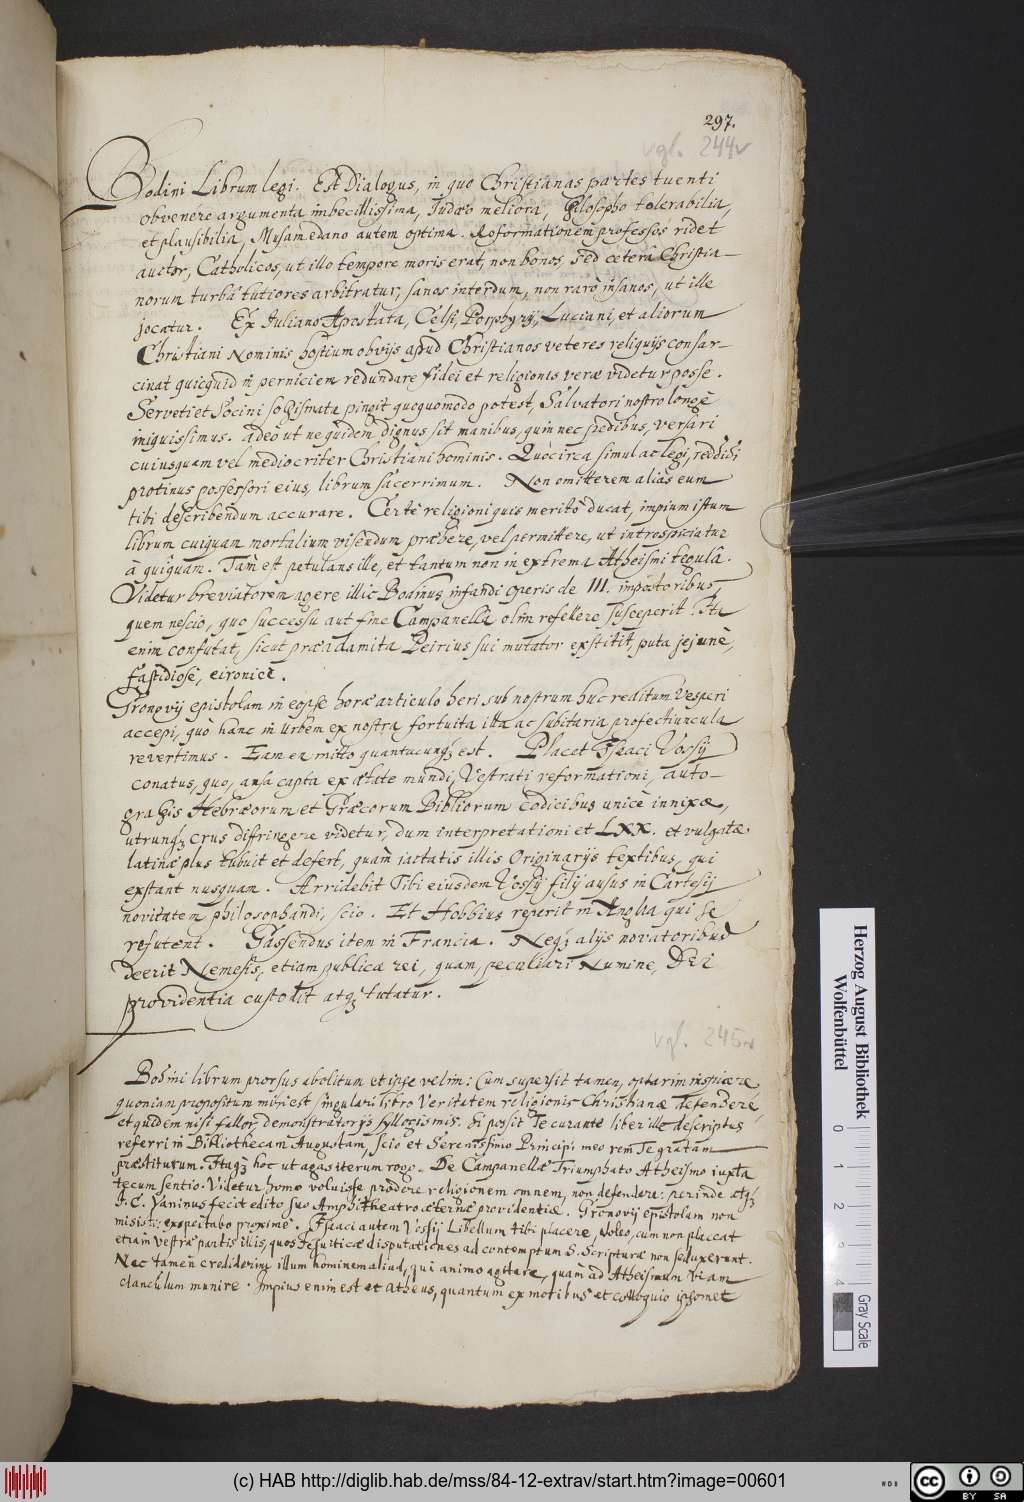 297.
vgl. 244v
Bodini Librum legi. Est Dialogus, in quo Christianas partes tuenti
obvenere argumenta imbecillissima, Judæo meliora, Philosopho tolerabilia,
et plausibilia, Musamedano autem optima. Reformationem professos ridet
auctor, Catholicos, ut illo tempore moris erat, non bonos, sed cetera Christia-
norum turba tutiores arbitratur, sanos interdum, non rarò insanos, ut ille
jocatur. Ex Juliano Apostata, Celsi, Porphyrij, Luciani, et aliorum
Christiani Nominis hostium obvijs apud Christianos veteres reliquijs consar-
cinat quicquid in perniciem redundare fidei et religionis veræ videtur posse.
Serveti et Socini sophismata pingit quoquomodo potest, Salvatori nostro longè
iniquissimus. adeò ut ne quidem dignus sit manibus, quin nec pedibus, versari
cuiusquam vel mediocriter Christiani hominis. Quòcirca simul ac legi, reddidi
protinus possessori eius, librum sacerrimum. Non omitterem alias eum
tibi describendum accurare. Certè religioni quis meritò ducat, impium istum
librum cuiquam mortalium visendum præbere, vel permittere, ut introspiciatur
à quiquam. Tam est petulans ille, et tantum non in extrema Atheismi tegula.
Videtur breviatorem agere illic Bodinus infandi operis de III. impostoribus,
quem nescio, quo successu aut fine Campanella olim refellere susceperit. Ita
enim confutat, sicut præadamita Peirius sui mutator exstitit, puta jejunè,
fastidiosè, eironicè.
Gronovij epistolam in eopse horæ articulo heri sub nostrum huc reditum Vesperi
accepi, quò hanc in Urbem ex nostra fortuita illa ac subitaria profectiuncula
revertimus. Eam en mitto quantacunq; est. Placet Isaaci Vossij
conatus, quo, ansa capta ex ætate mundi, Vestrati reformationi, auto-
graphis Hebræorum et Græcorum Bibliorum codicibus unicè innixæ,
utrunq; crus diffringere videtur, dum interpretationi et LXX. et vulgatæ
latinæ plus tribuit et defert, quam jactatis illis Originarijs textibus, qui
exstant nusquam. Arridebit Tibi eiusdem Vossij filij ausus in Cartesij
novitatem philosophandi, scio. Et Hobbius reperit in Anglia qui se
refutent. Gassendus item in Francia. Neq; alijs novatoribus
deerit Nemesis, etiam publicæ rei, quam, peculiari Numine, DEI
providentia custodit atq; tutatur.
vgl. 245r
Bodini librum prorsus abolitum et ipse velim: Cum supersit tamen, optarim inspicere,
quoniam propositum mihi est singulari libro Veritatem religionis Christianæ defendere,
et quidem nisi fallor, demonstratorijs syllogismis. Si posit Te curante liber ille descriptus
referri in Bibliothecam Augustam, scio et Serenissimo Principi meo rem Te gratam
præstiturum. Itaq; hoc ut agas iterum rogo. De Campanellæ Triumphato Atheismo iuxta
tecum sentio. Videtur homo voluisse prodere religionem omnem, non defendere: perinde atq;
J. C. Vaninus fecit edito suo Amphitheatro æternæ providentiæ. Gronovij epistolam non
misisti: exspectabo proximè. Isaaci autem Vossij Libellum tibi placere, doleo, cum non placeat
etiam vestræ partis illis, quos Jesuiticæ disputationes ad contemptum S. Scripturæ non seduxerunt.
Nec tamen crediderim illum hominem aliud, qui animo agitare, quam ad Atheismum viam
clanculum munire. Impius enim est et Atheus, quantum ex moribus et colloquio ipsomet
Herzog August Bibliothek
Wolfenbüttel
0 1 2 3 4
Gray Scale
(c) HAB http://diglib.hab.de/mss/84-12-extrav/start.htm?image=00601
cc BY SA